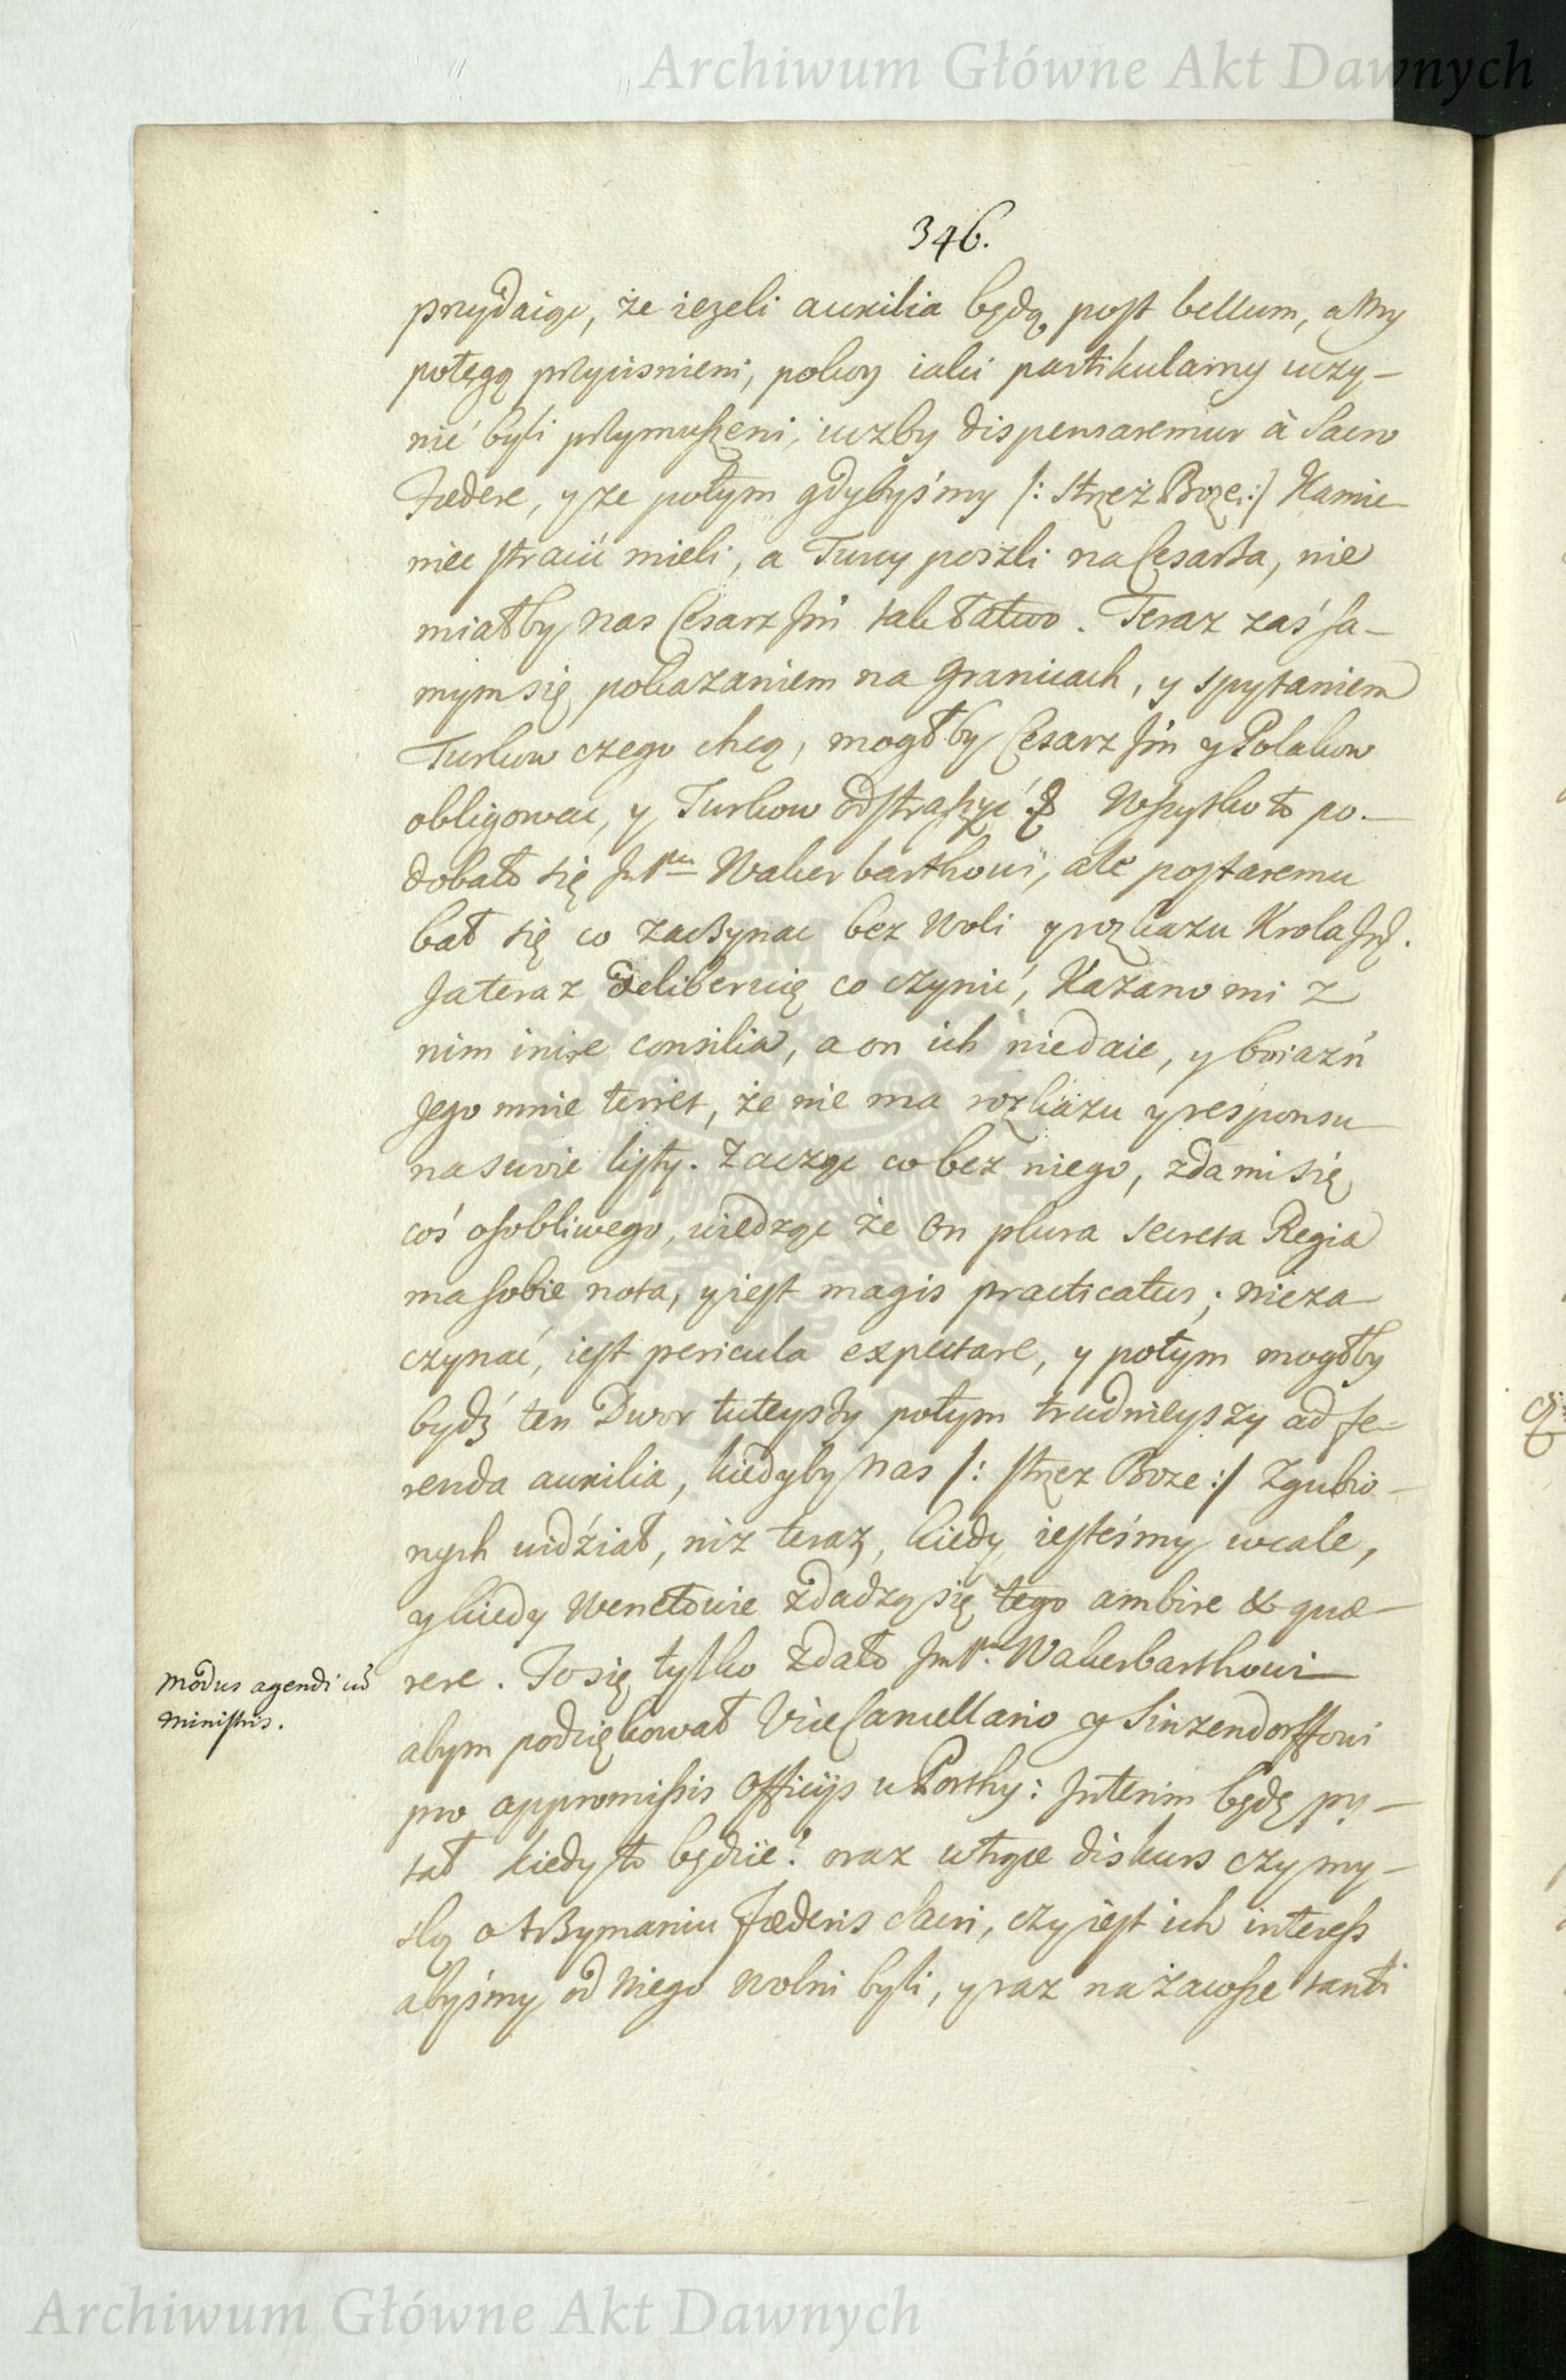 Archiwum Główne Akt Dawnych
346.
przydaiąc, że ieżeli auxilia będą post bellum, a My
potęgą przyciśnieni, pokoy iaki partikularny uczy-
nić byli przymuszeni, iużby dispensaremur à Sacro
Fædere, y ze potym gdybyśmy /: strzeż Boże :/ Kamie-
niec stracić mieli, a Turcy poszli na Cesarza, nie
miałby nas Cesarz Jm tak łatwo. Teraz zaś sa-
mym się pokazaniem na granicach, y spytaniem
Turkow czego chcą, mogłby Cesarz Jm y Polakow
obligowac, y Turkow odstraszyć. Wszystko to po-
dobało się Wakerbarthowi, ale postaremu
bał się co zaczynac bez Woli y rozkazu Krola Jmſ.
Ja teraz deliberuię co czynić, Kazano mi z
nim inire consilia, a on ich niedaie, y boiazń
Jego mnie terret, że nie ma rozkazu y responsu
na swoie listy. Zacząc co bez niego, zda mi się
coś osobliwego, wiedząc że on plura secreta Regia
ma sobie nota, y iest magis practicatus; nieza
czynać, iest pericula expectare, y potym mogłby
bydź ten Dwor tuteyszy potym trudnieyszy ad fe-
renda auxilia, kiedyby nas /: strzez Boze :/ Zgubio-
nych widźiał, niz teraz, kiedy iesteśmy wcale,
y kiedy Wenetowie zdadzą się tego ambire & quæ-
rere. To się tylko zdało Wakerbarthowi
Modus agendi cũ
Ministris.
abym podziękował ViceCancellario y Sinzendorffowi
pro appromissis Officijs u Porthy: Interim będę py-
tał kiedy to będzie? oraz wtrącę diskurs czy my-
slą o trzymaniu Fæderis Sacri, czy iest ich interess
abyśmy od Niego wolni byli, y raz na zawsze tanti
Archiwum Główne Akt Dawnych